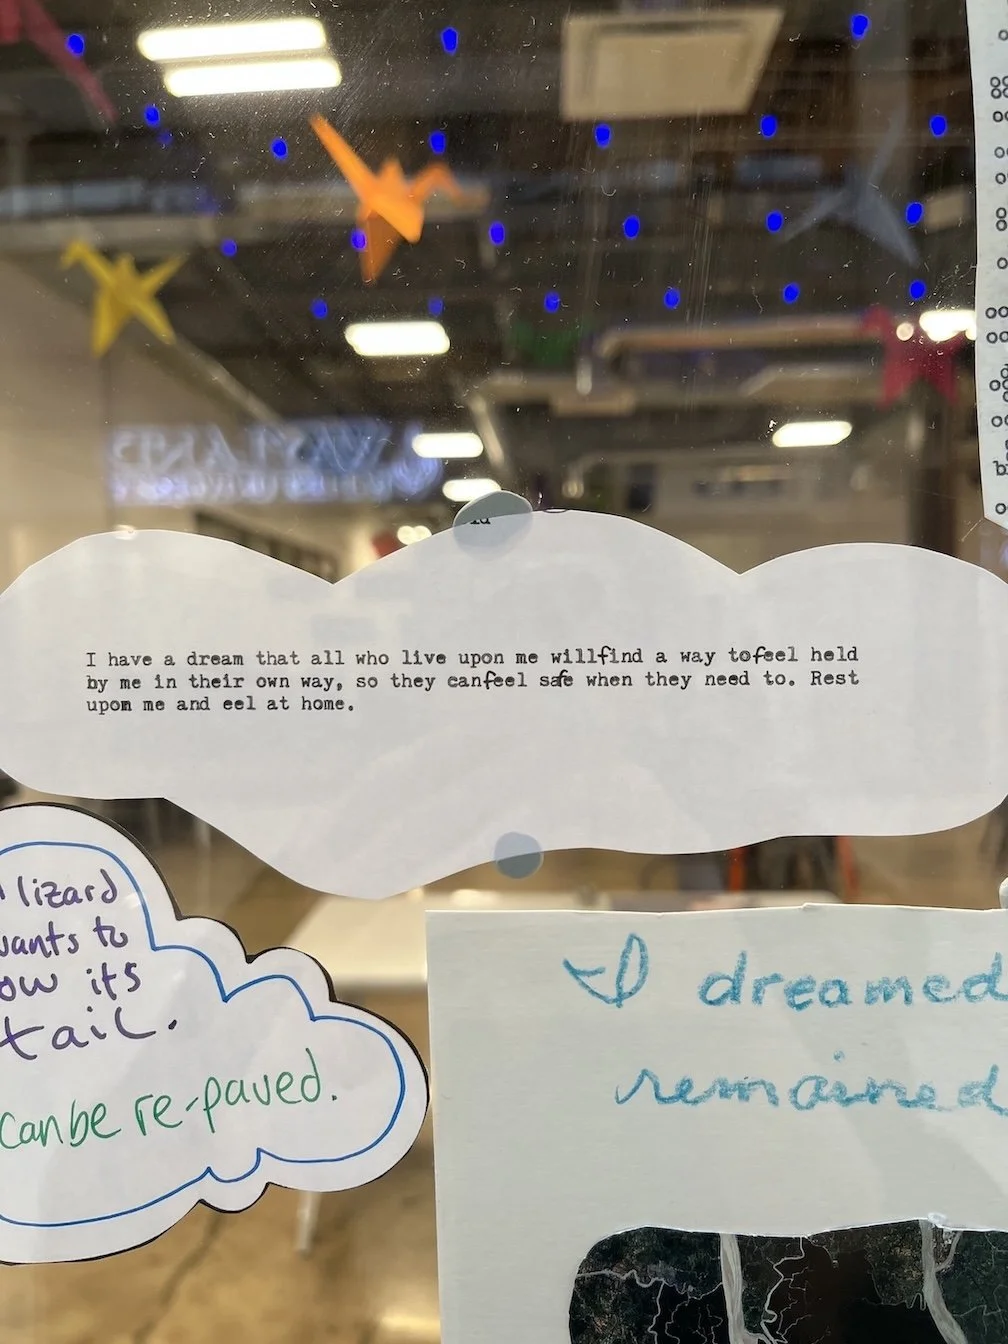 I have a dream that all who live upon me willfind a way tofeel held
by me in their own way, so they canfeel safe when they need to. Rest
upom me and eel at home.
lizard
wants to
its
tail.
canbe re-paved.
I dreamed
remained